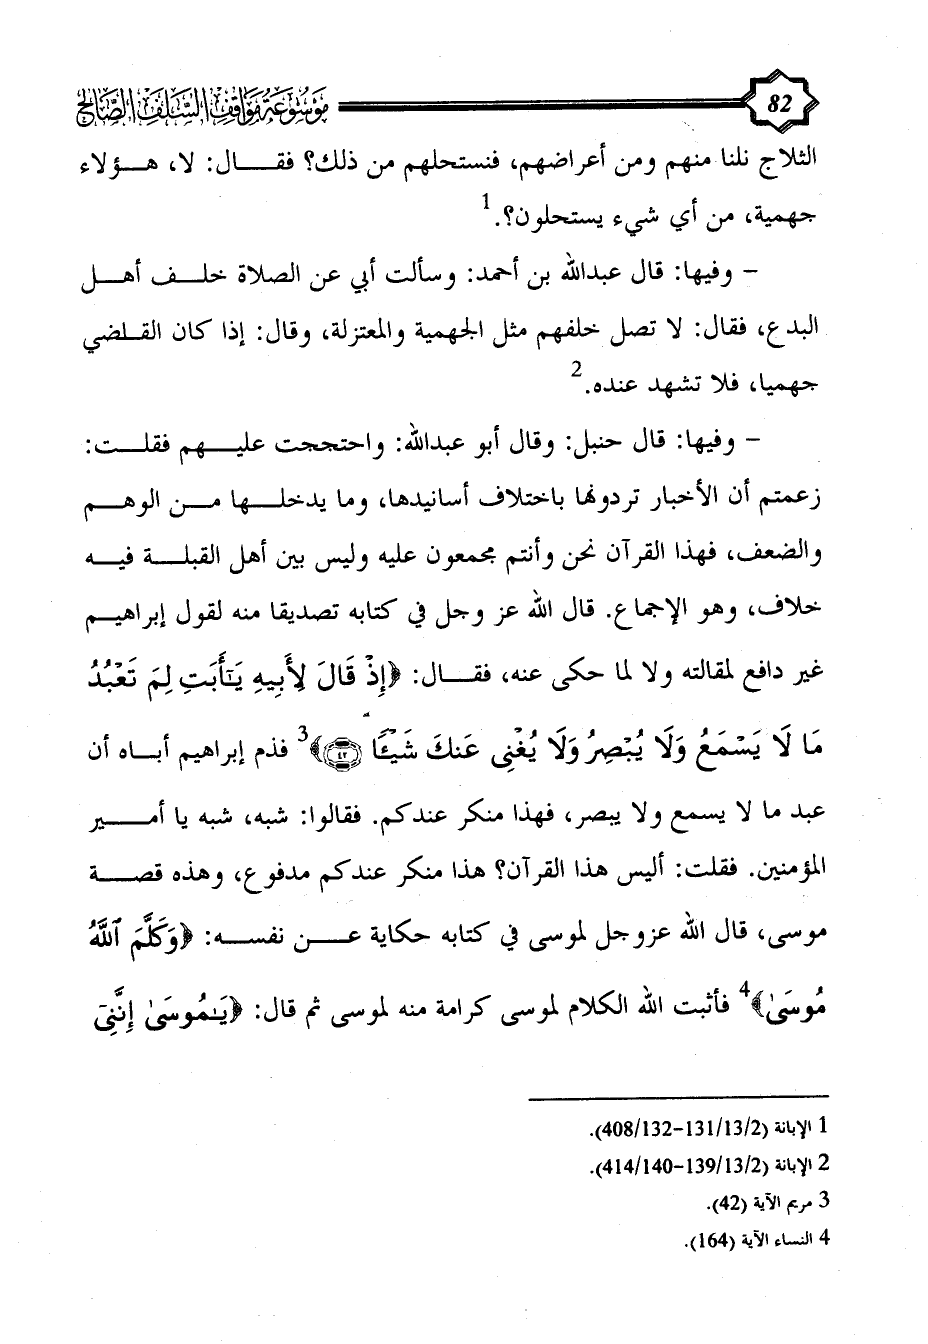 82 موسوعة مواقف السلف الصالح
الثلاج نلنا منهم ومن أعراضهم، فنستحلهم من ذلك؟ فقـــال: لا، هـــؤلاء
جهمية، من أي شيء يستحلون؟.1
– وفيها: قال عبدالله بن أحمد: وسألت أبي عن الصلاة خلـــف أهـــل
البدع، فقال: لا تصل خلفهم مثل الجهمية والمعتزلة، وقال: إذا كان القـلضي
جهميا، فلا تشهد عنده.2
– وفيها: قال حنبل: وقال أبو عبدالله: واحتججت عليـــهم فقلـــت:
زعمتم أن الأخبار تردونها باختلاف أسانيدها، وما يدخلـــها مـــن الوهـــم
والضعف، فهذا القرآن نحن وأنتم مجمعون عليه وليس بين أهل القبلـــة فيـــه
خلاف، وهو الإجماع. قال الله عز وجل في كتابه تصديقا منه لقول إبراهيـــم
غير دافع لمقالته ولا لما حكى عنه، فقـــال: ﴿إِذْ قَالَ لِأَبِيهِ يَـٰٓأَبَتِ لِمَ تَعْبُدُ
مَا لَا يَسْمَعُ وَلَا يُبْصِرُ وَلَا يُغْنِى عَنكَ شَيْـًٔا ٤٢﴾3 فذم إبراهيم أبـــاه أن
عبد ما لا يسمع ولا يبصر، فهذا منكر عندكم. فقالوا: شبه، شبه يا أمـــير
المؤمنين. فقلت: أليس هذا القرآن؟ هذا منكر عندكم مدفوع، وهذه قصـــة
موسى، قال الله عزوجل لموسى في كتابه حكاية عـــن نفســـه: ﴿وَكَلَّمَ ٱللَّهُ
مُوسَىٰ﴾4 فأثبت الله الكلام لموسى كرامة منه لموسى ثم قال: ﴿يَـٰمُوسَىٰ إِنَّنِىٓ
1 الإبانة (408/132-131/13/2).
2 الإبانة (414/140-139/13/2).
3 مريم الآية (42).
4 النساء الآية (164).